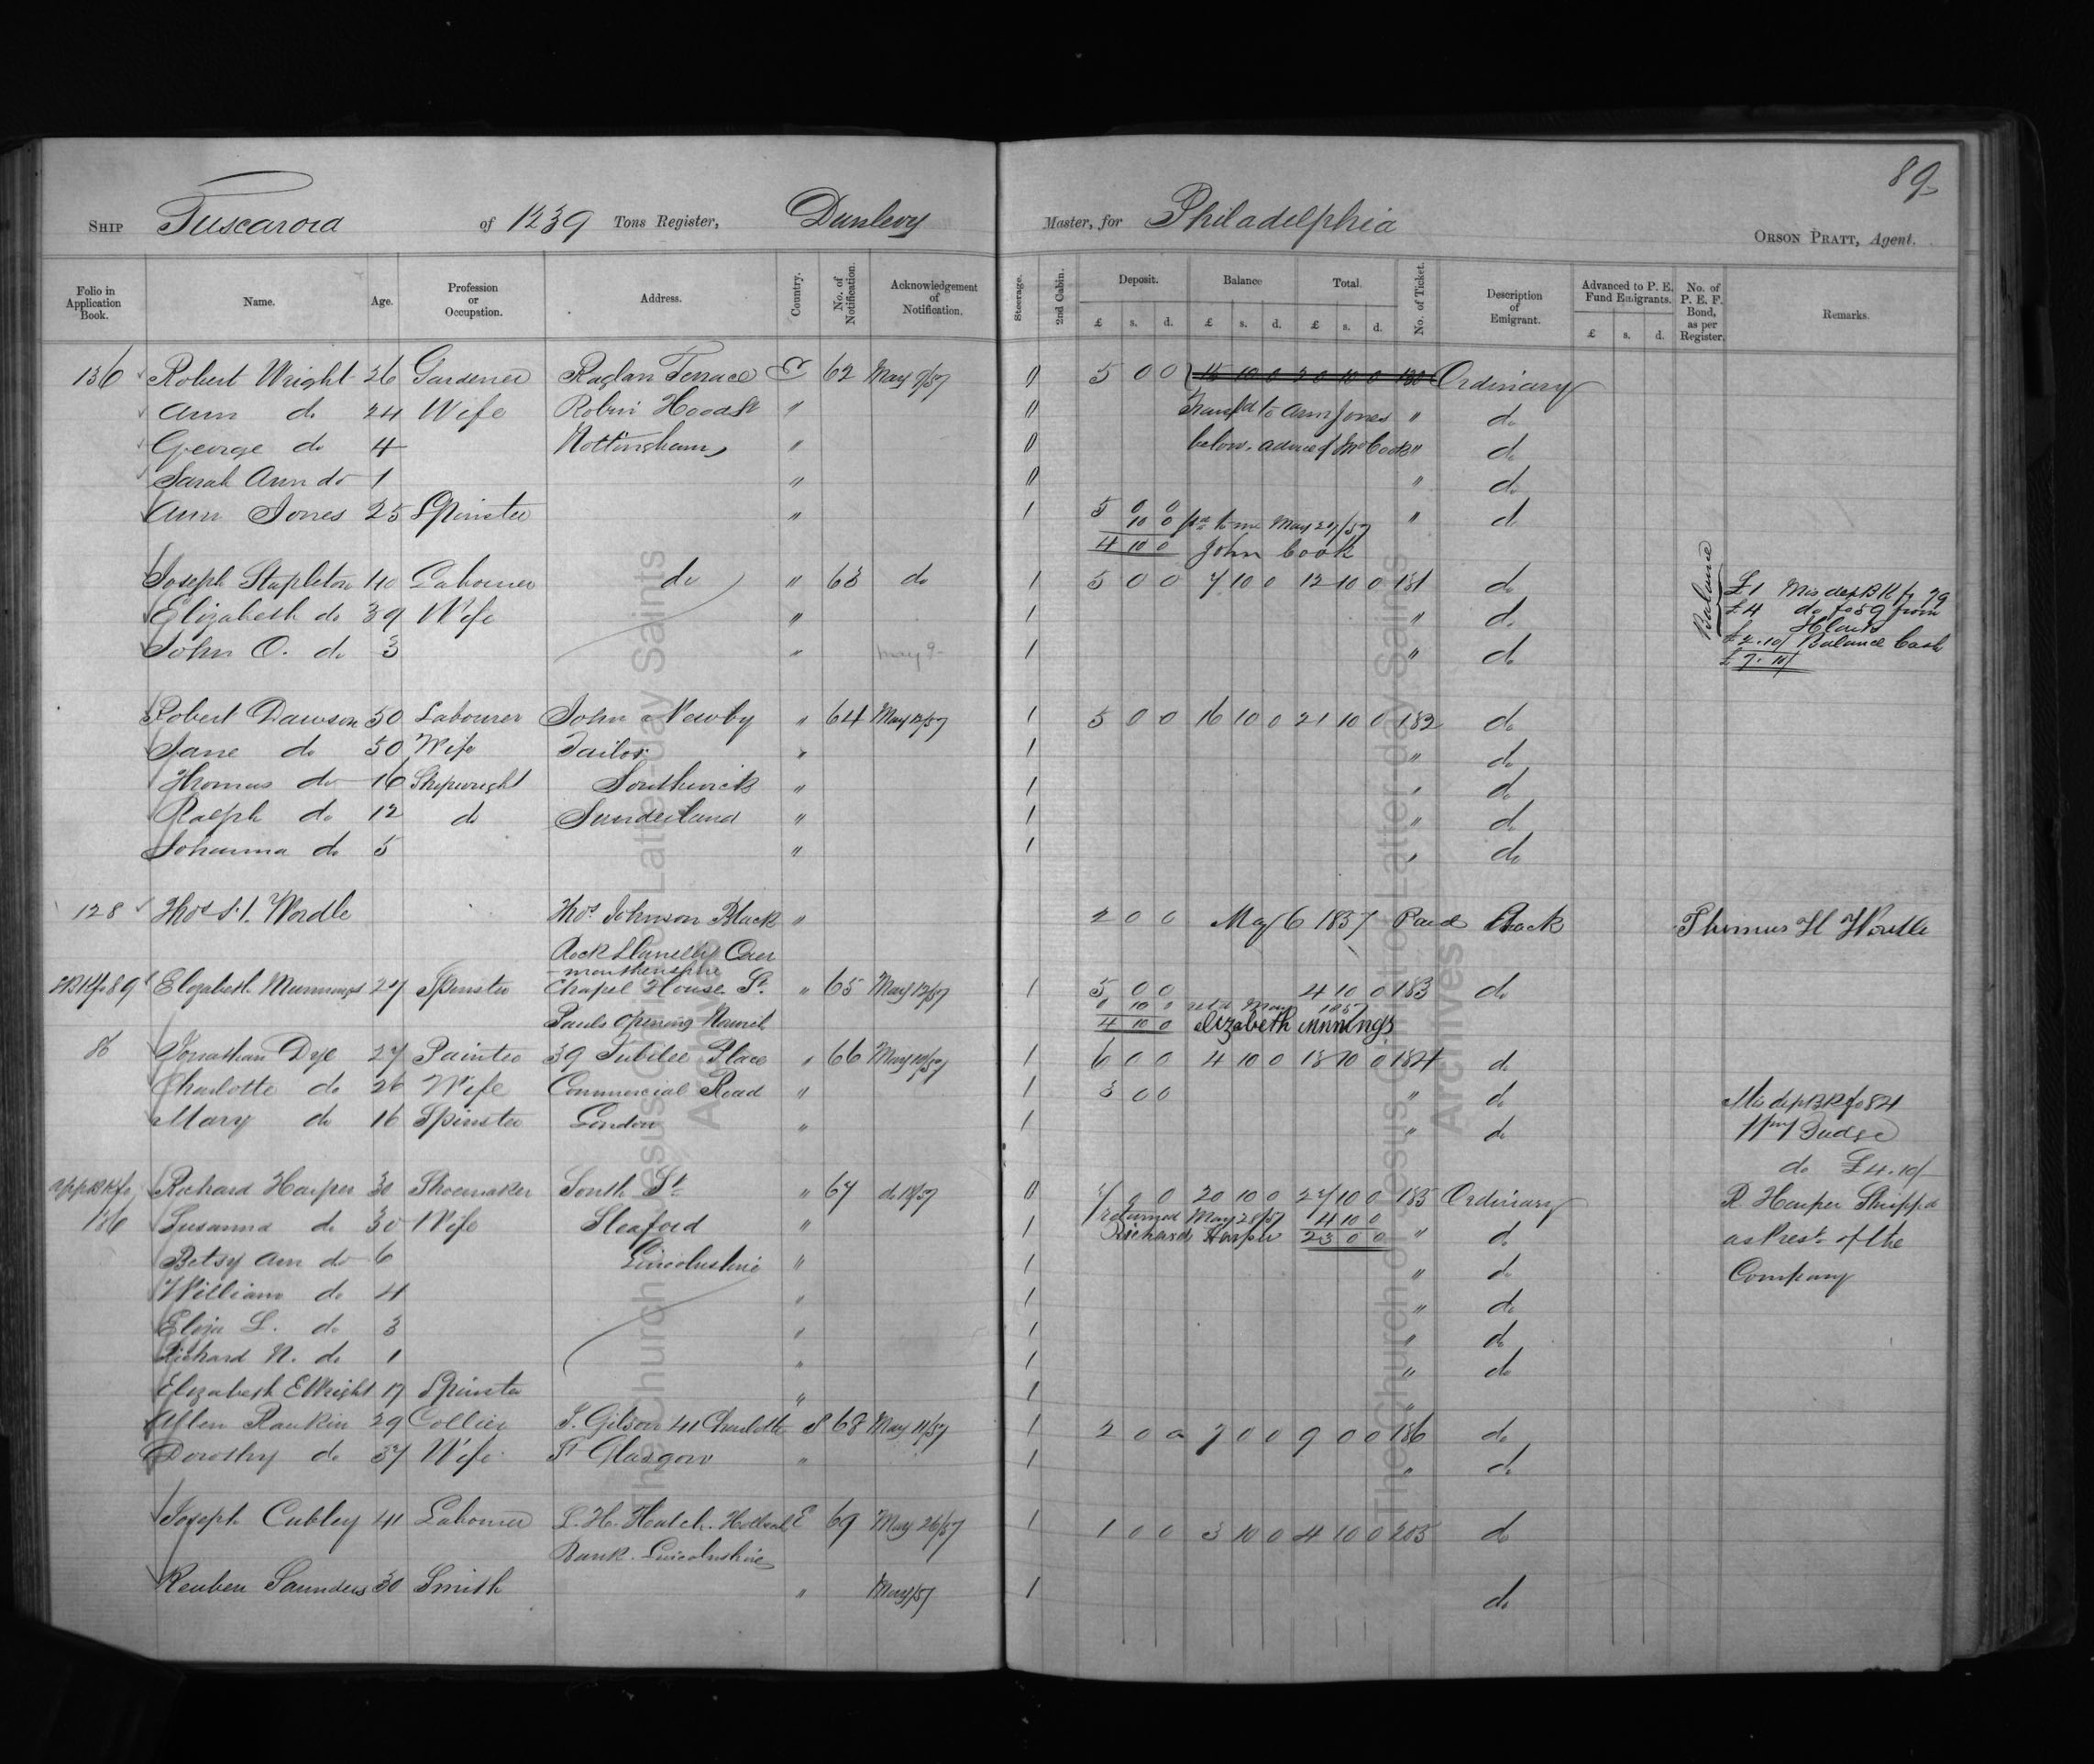 89
SHIP Tuscarora of 1239 Tons Register, Dunlevy Master, for Philadelphia ORSON PRATT, Agent.
Folio in Application Book. Name. Age. Profession or Occupation. Address. Country. No. of Notification. Acknowledgement of Notification. Steerage. 2nd Cabin. Deposit. Balance Total. No. of Ticket. Description of Emigrant. Advanced to P. E. Fund Emigrants. No. of P. E. F. Bond, as per Register. Remarks.
£ s. d. £ s. d. £ s. d. £ s. d.
136 Robert Wright 26 Gardener Raglan Terrace E 62 May 9/57 0 5 0 0 15 10 0 20 10 0 180 Ordinary
Ann do 24 Wife Robin Hood St " 0 Transfd to Ann Jones " do
George do 4 Nottingham " 0 below. advice of Jno Cook " do
Sarah Ann do 1 " 0 " do
Ann Jones 25 Spinster " 1 5 0 0 " do
10 0 pd to me May 29/57
4 10 0 John Cook
Joseph Stapleton 40 Labourer do " 63 do 1 5 0 0 7 10 0 12 10 0 181 do Balance £1 Mis dep BK fo 79
Elizabeth do 39 Wife " 1 " do £4 do fo 59 from
John O. do 3 " may 9 1 " do £2.10/ Balance Cash
£7.10/
Robert Dawson 50 Labourer John Newby " 64 May 12/57 1 5 0 0 16 10 0 21 10 0 182 do
Jane do 50 Wife Tailor " 1 " do
Thomas do 16 Shipwright Southwick " 1 " do
Ralph do 12 do Sunderland " 1 " do
Johanna do 5 " 1 " do
128 Thos H. Wordle Thos Johnson Black " 2 0 0 May 6 1857 Paid Back Thomas H Wordle
Rock Llanelly Caer
-marthenshire
Elizabeth Munnings 27 Spinster Chapel House St. " 65 May 12/57 1 5 0 0 4 10 0 183 do
Pauls Opening Norwich 0 10 0 retd May 1857
4 10 0 Elizabeth Munnings
86 Jonathan Dye 27 Painter 39 Jubilee Place " 66 1 6 0 0 4 10 0 13 10 0 184 do
Charlotte do 26 Wife Commercial Road " 1 3 0 0 " do Mis dep BK fo 84
Mary do 16 Spinster London " 1 " do pr Judge
do £4.10/
App BK fo Richard Harper 30 Shoemaker South St " 67 do 18/57 0 7 0 0 20 10 0 27 10 0 185 Ordinary R Harper Shippd
136 Susanna do 30 Wife Sleaford " 1 returned May 28/57 4 10 0 " do as Prest of the
Richard Harper 23 0 0
Betsy Ann do 6 Lincolnshire " 1 " do Company
William do 4 " 1 " do
Eliza L. do 3 " 1 " do
Richard N. do 1 " 1 " do
Elizabeth E Wright 17 Spinster " 1 "
Allen Rankin 29 Collier J. Gibson 41 Charlotte S 68 May 11/57 1 2 0 0 7 0 0 9 0 0 186 do
Dorothy do 37 Wife St Glasgow " 1 " do
Joseph Cubley 41 Labourer L. H. Hatch. E 69 May 26/57 1 1 0 0 3 10 0 4 10 0 205 do
Bank. Lincolnshire
Reuben Saunders 30 Smith " May/57 1 do
The Church of Jesus Christ of Latter-day Saints
Archives
The Church of Jesus Christ of Latter-day Saints
Archives